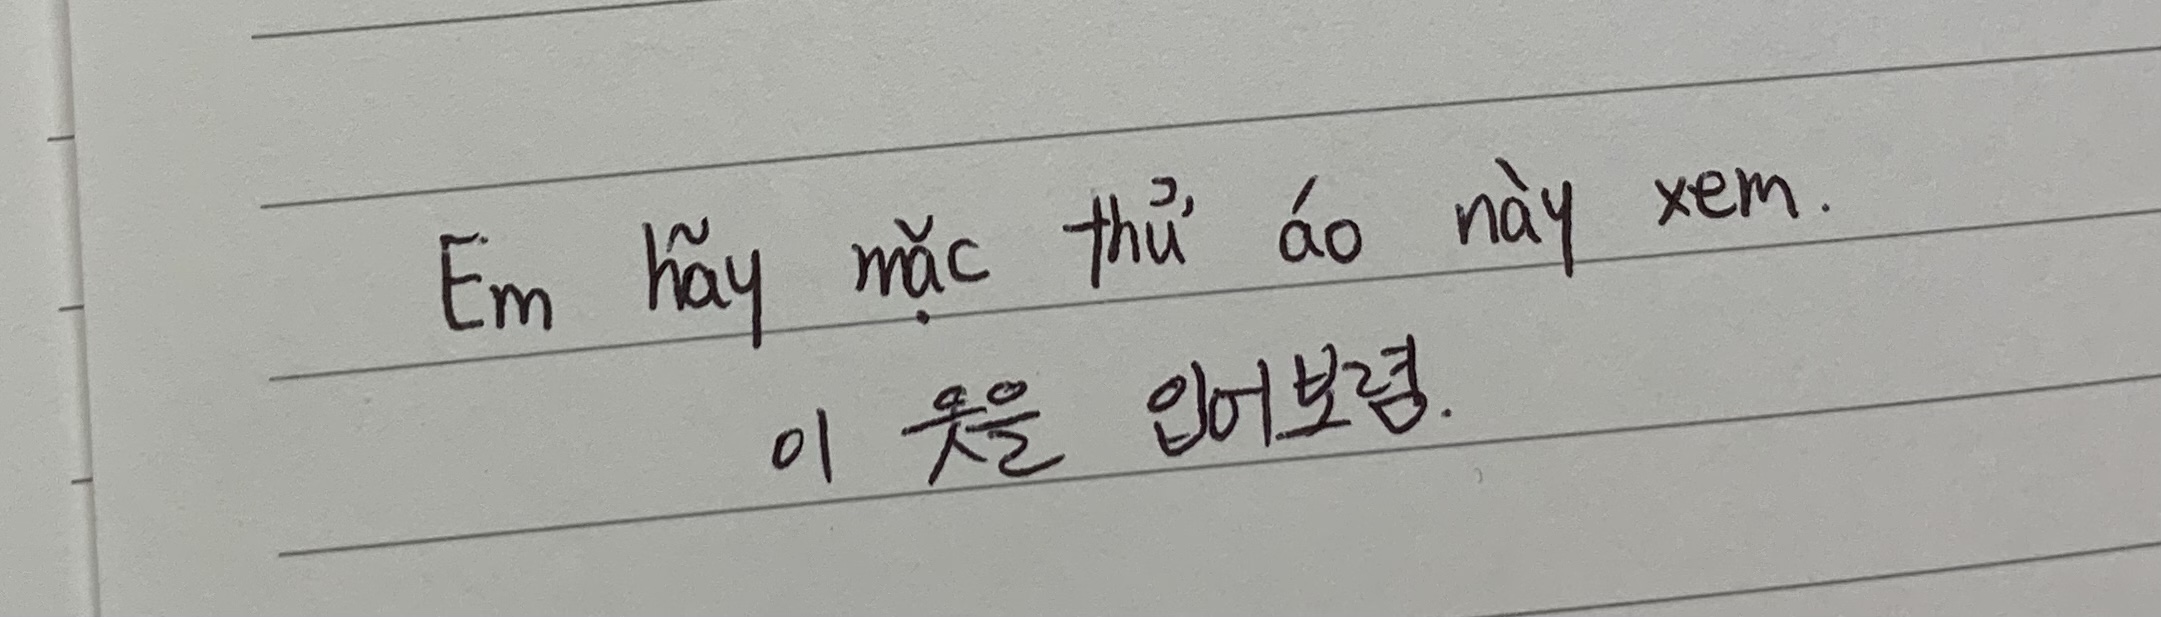 Em hãy mặc thử áo này xem.
이 옷을 입어보렴.